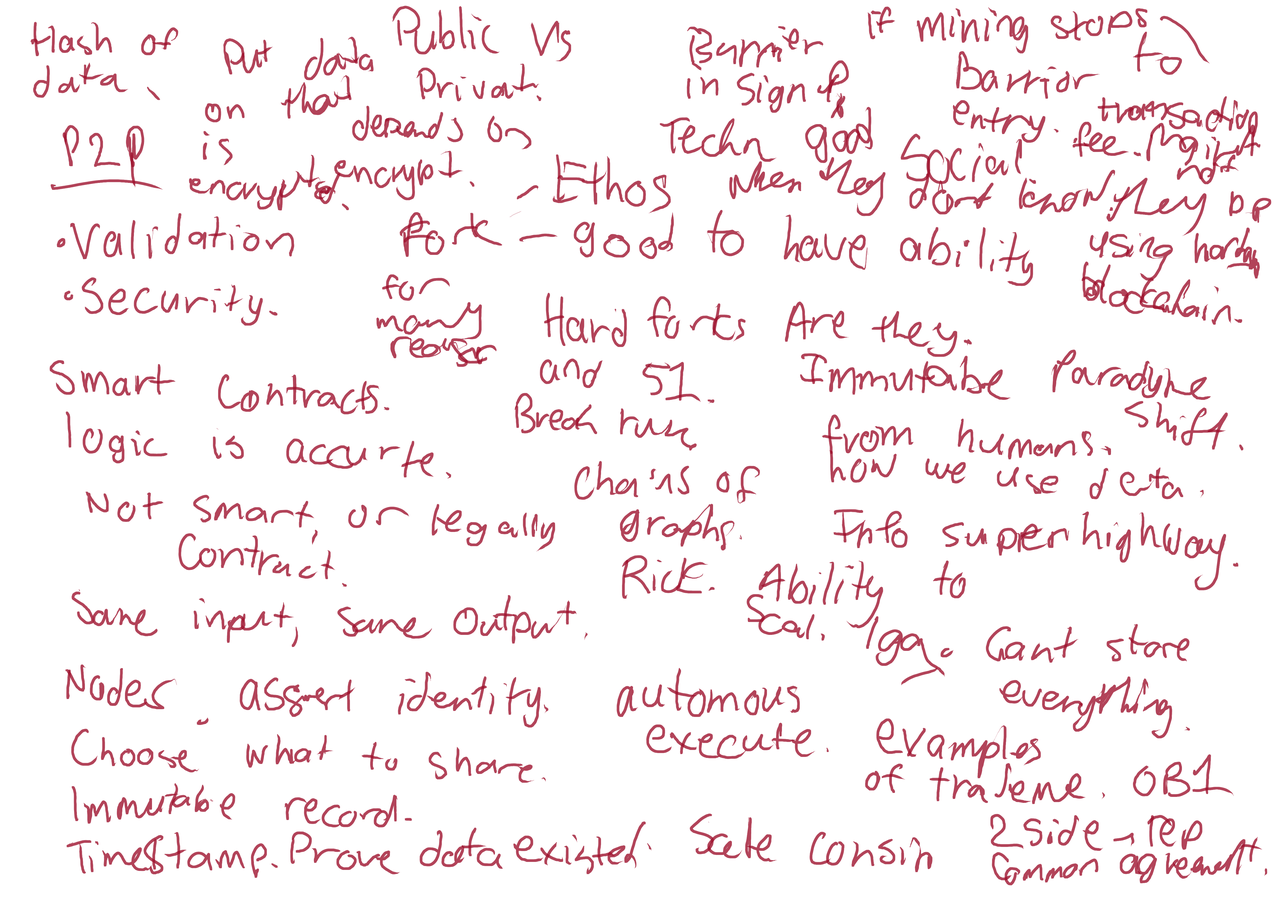 Hash of
data.
Put data
on that
is
encrypted.
Public Vs
Privat.
depends on
encrypt.
Barrier
in sign up
Techn good
when they
dont know they
using
blockchain.
If mining stops
Barrior to
entry. transaction
fee. Might
not
P2P
Social
- Ethos
• Validation
• Security.
Fork - good to have ability
for
many
Hard forks Are they.
and 51.
Break run
Immutabe Paradyme
Shift.
from humans.
how we use data.
Smart Contracts.
logic is accurte.
Chains of
graphs.
Not smart, or legally
Contract.
Info superhighway.
Rick. Ability to
Scal.
Same input, Same Output.
Cant store
everything.
Nodes assert identity.
automous
execute.
Choose what to share.
examples
of
OB1
Immutabe record.
Timestamp. Prove data existed.
2 Side - rep
Common agreement.